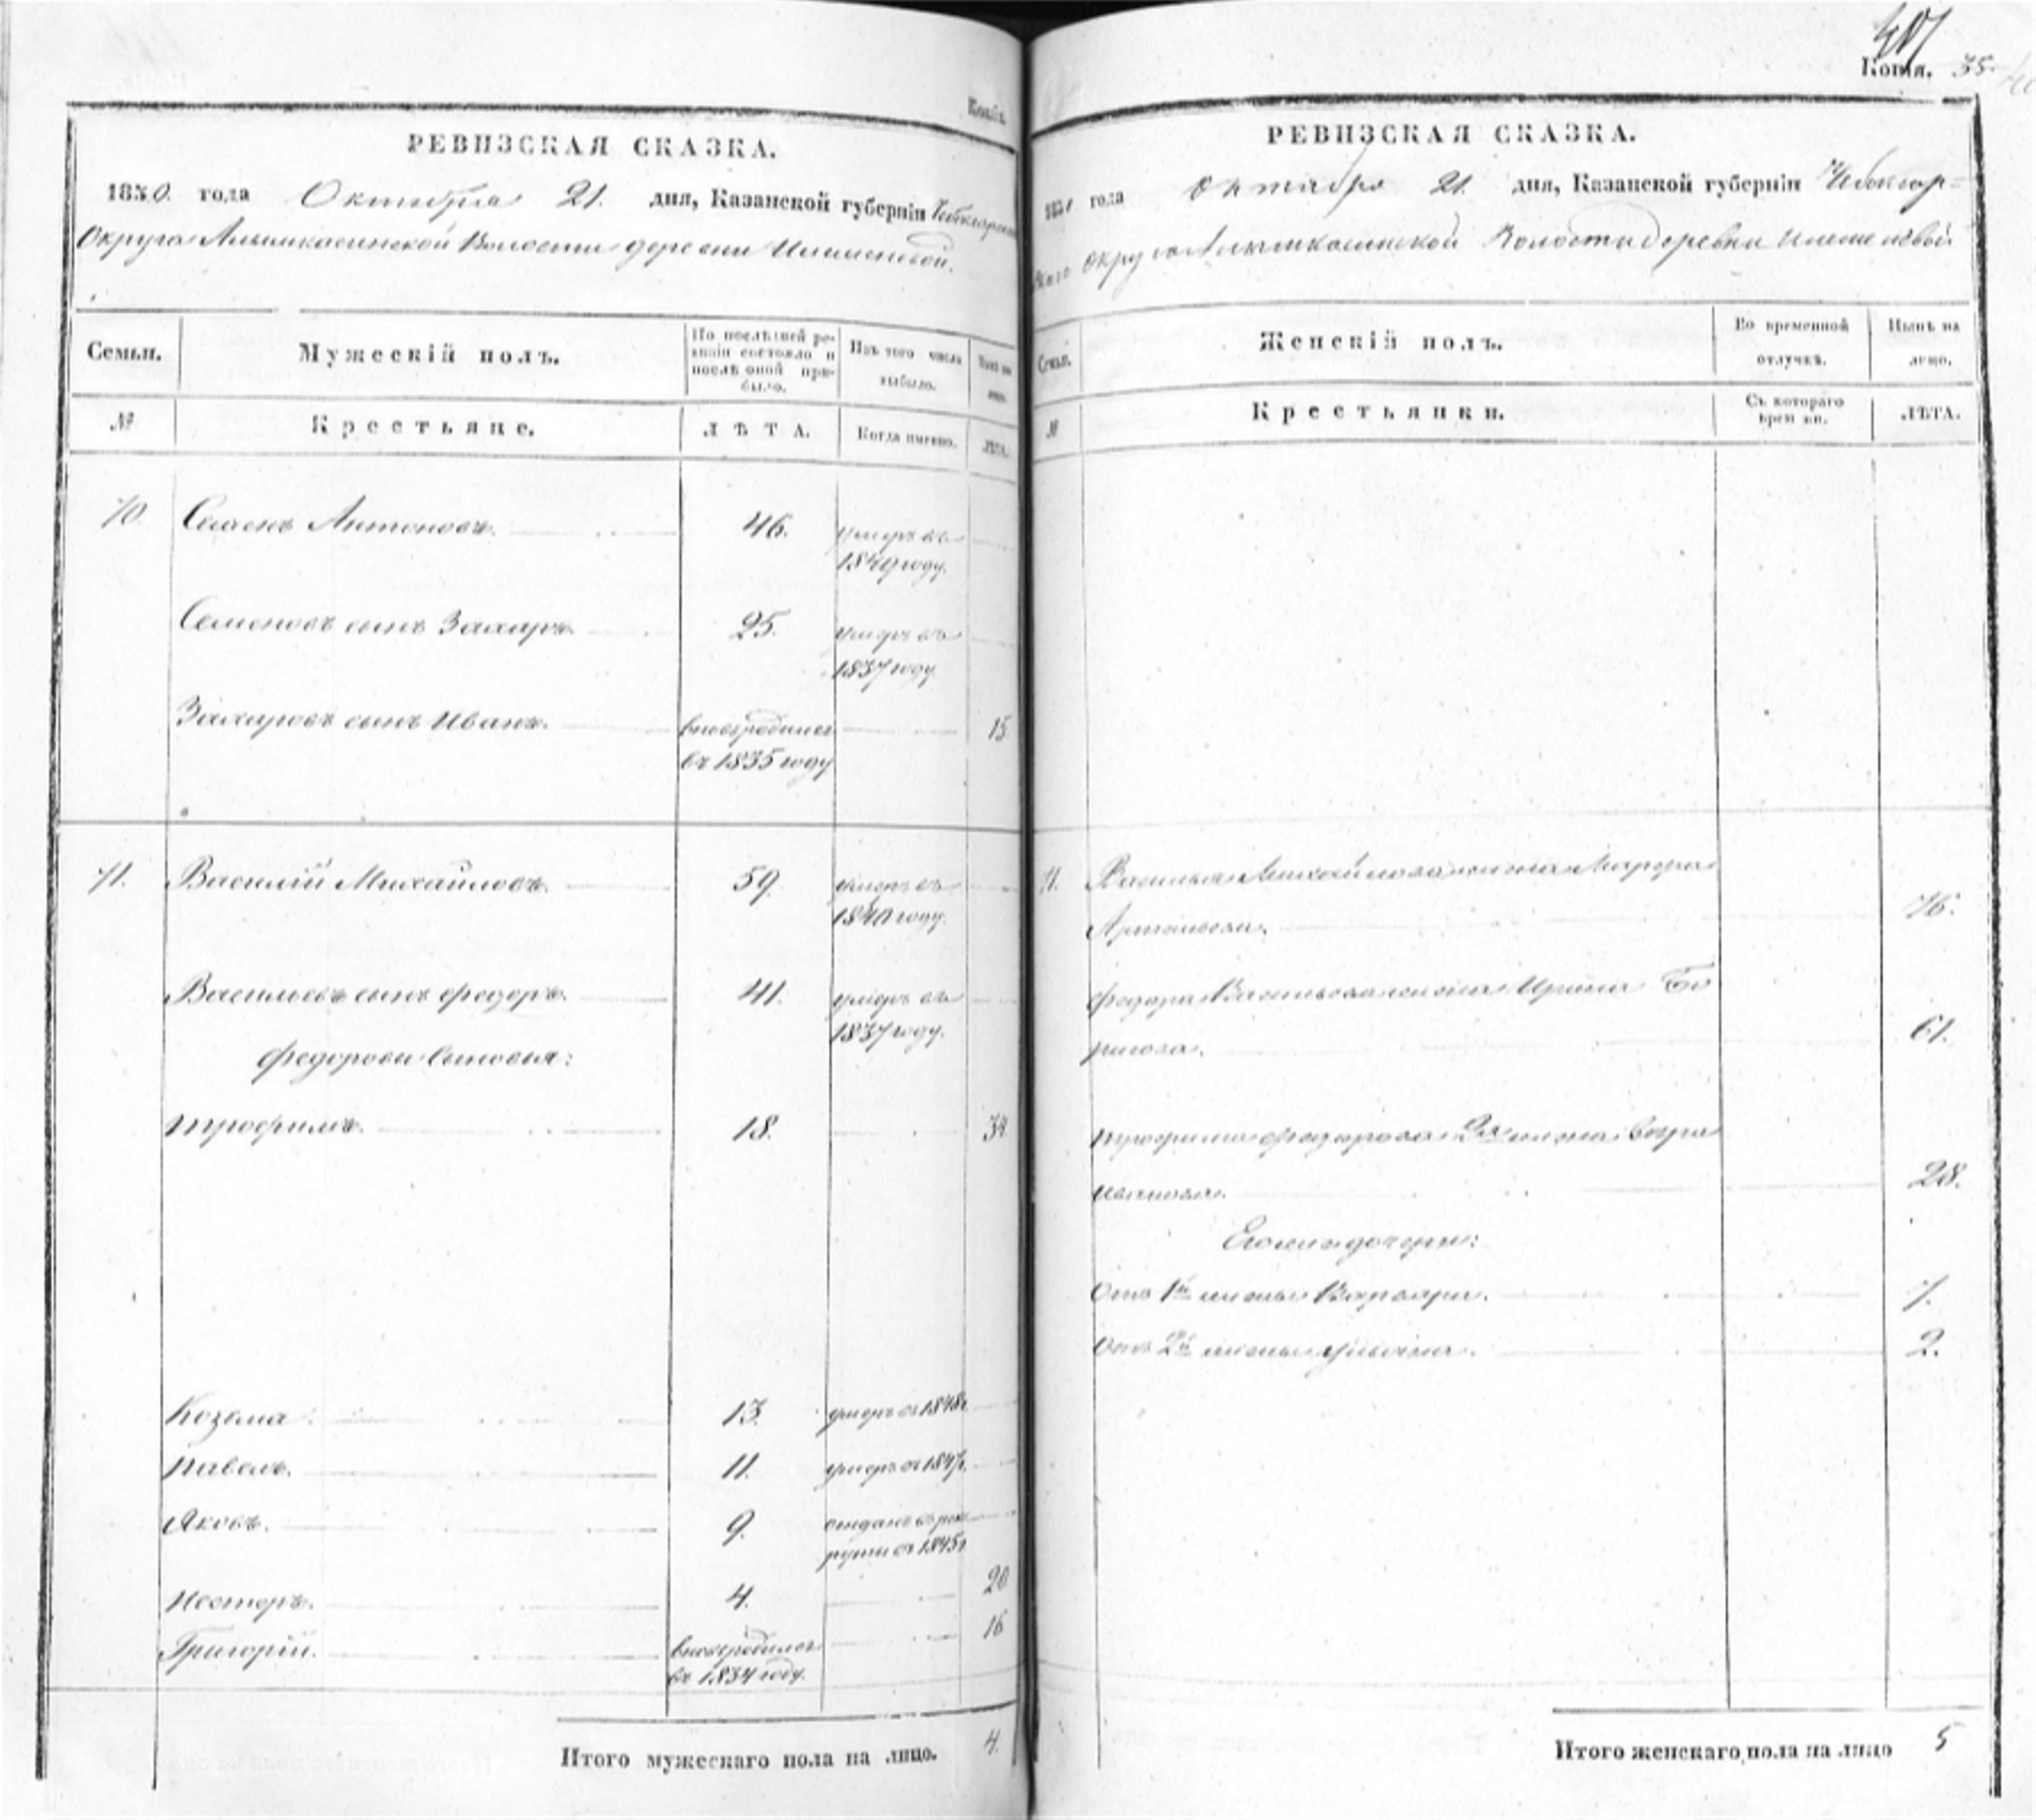 Копія.
РЕВИЗСКАЯ СКАЗКА.
1850. года Октября 21. дня, Казанской губерніи
Округа Волости деревни
Семьи. Мужескій полъ. По послѣдней ревизіи состояло и послѣ оной прибыло. Изъ того числа выбыло. Нынѣ на лицо.
№ Крестьяне. ЛѢТА. Когда именно. ЛѢТА.
70 Семенъ Антоновъ. 46. умеръ въ
1849 году.
Семеновъ сынъ Захаръ. 25. умеръ въ
1837 году.
Захаровъ сынъ Иванъ. вновь родился 15
въ 1835 году
71. Василій Михайловъ. 59. умеръ въ
1840 году.
Васильевъ сынъ Федоръ. 41. умеръ въ
1837 году.
Федоровы сыновья:
Трофимъ. 18. 34
Козьма 13. умеръ въ 1848 г.
Павелъ. 11. умеръ въ 1847 г.
Яковъ. 9. отданъ въ рек
руты въ 1845 г
Несторъ. 4. 20
Григорій. вновь родился 16
въ 1834 году.
Итого мужескаго пола на лицо. 4.
Копія. 35.
РЕВИЗСКАЯ СКАЗКА.
1850 года Октября 21. дня, Казанской губерніи Чебоксар-
скаго Округа Волости деревни
Семьи. Женскій полъ. Во временной отлучкѣ. Нынѣ на лицо.
№ Крестьянки. Съ котораго времени. ЛѢТА.
71. Василья Михайлова жена Марфа
76.
Федора Васильева жена Ирина Бо
рисова. 61.
Трофима Федорова 2я жена Вѣра
Иванова. 28.
Его же дочери:
Отъ 1й жены Варвара. 7.
Отъ 2й жены Ульяна. 2.
Итого женскаго пола на лицо 5